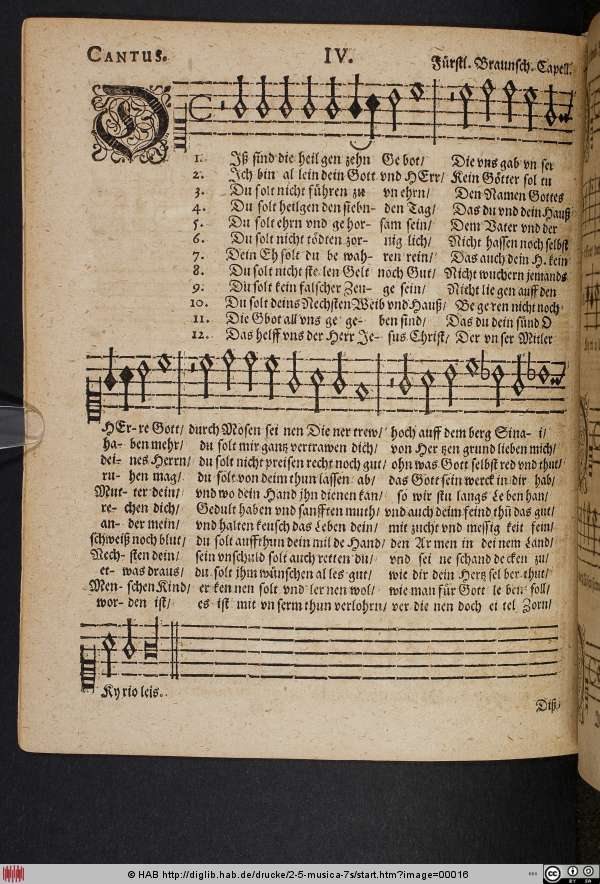 CANTUS.
IV.
Fürstl. Braunsch. Capell.
D
1. Iß sind die heilgen zehn Gebot/ Die vns gab vnser
2. Ich bin allein dein Gott vnd HErr/ Kein Götter sol tu
3. Du solt nicht führen zu vnehrn/ Den Namen Gottes
4. Du solt heilgen den siebnden Tag/ Das du vnd dein Hauß
5. Du solt ehrn vnd gehorsam sein/ Dem Vater vnd der
6. Du solt nicht tödten zorniglich/ Nicht hassen noch selbst
7. Dein Eh solt du bewahren rein/ Das auch dein H. kein
8. Du solt nicht stelen Gelt noch Gut/ Nicht wuchern jemands
9. Du solt kein falscher Zeuge sein/ Nicht liegen auff den
10. Du solt deins Nechsten Weib vnd Hauß/ Begeren nicht noch
11. Die Gbot all vns gegeben sind/ Das du dein sünd O
12. Das helff vns der Herr Jesus Christ/ Der vnser Mitler
HEr-re Gott/ durch Mosen seinen Diener trew/ hoch auff dem berg Sina-i/
ha-ben mehr/ du solt mir gantz vertrawen dich/ von Hertzen grund lieben mich/
dei-nes Herrn/ du solt nicht preisen recht noch gut/ ohn was Gott selbst red vnd thut/
ru-hen mag/ du solt von deim thun lassen ab/ das Gott sein werck in dir hab/
Mut-ter dein/ vnd wo dein Hand ihn dienen kan/ so wir stu langs Leben han/
re-chen dich/ Gedult haben vnd sanfften muth/ vnd auch deim feind thü das gut/
an-der mein/ vnd halten keusch das Leben dein/ mit zucht vnd messigkeit fein/
schweiß noch blut/ du solt auffthun dein milde Hand/ den Armen in deinem Land/
Nech-sten dein/ sein vnschuld solt auch retten du/ vnd seine schand decken zu/
et-was draus/ du solt ihm wünschen alles gut/ wie dir dein Hertz selber thut/
Men-schen Kind/ erkennen solt vnd lernen wol/ wie man für Gott leben soll/
wor-den ist/ es ist mit vnserm thun verlohrn/ verdienen doch eitel Zorn/
Kyrioleis.
Diß/
© HAB http://diglib.hab.de/drucke/2-5-musica-7s/start.htm?image=00016